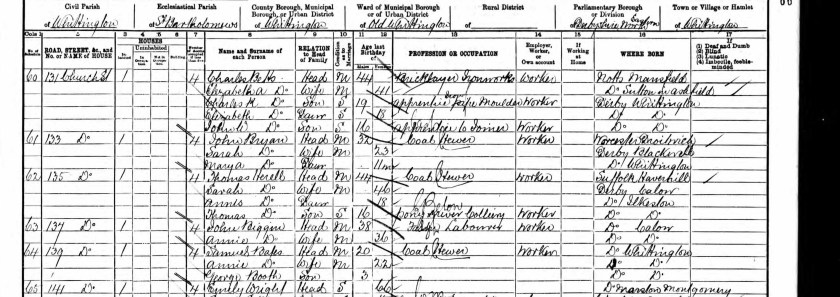 Civil Parish
Ecclesiastical Parish
County Borough, Municipal Borough, or Urban District
Ward of Municipal Borough or of Urban District
Rural District
Parliamentary Borough or Division
Town or Village or Hamlet
of Whittington
of St Bartholomews
of Whittington
of Old Whittington
of
of Derbyshire
of Whittington
Cols. 1 2 3 4 5 6 7 8 9 10 11 12 13 14 15 16 17
No. of Schedule ROAD, STREET, &c., and No. or NAME of HOUSE Inhabited Uninhabited Building Name and Surname of each Person RELATION to Head of Family Condition as to Marriage Age last Birthday of PROFESSION OR OCCUPATION Employer, Worker, or Own account If Working at Home WHERE BORN If (1) Deaf and Dumb (2) Blind (3) Lunatic (4) Imbecile, feeble-minded
60 131 Church St 1 4 Charles Head M 44 Bricklayer Ironworks Worker Notts Mansfield
Elizabeth a Do Wife M 41 Do Sutton in ashfield
Charles H. Do Son S 19 apprentice Iron pipe Moulder Worker Derby Whittington
Elizabeth Do Daur S 18 Do Do
John Do Son S 16 apprentice to Joiner Worker Do Do
61 133 Do 1 4 John Bryan Head M 32 Coal Hewer Worker Worcester Droitwich
Sarah Do Wife M 23 Derby Blackwell
Do Daur 11m Do Whittington
62 135 Do 1 4 Thomas Head M 44 Coal Hewer Worker Suffolk Haverhill
Sarah Do Wife M 46 Derby Calow
Annis Do Daur 18 Do Ilkeston
Thomas Do Son S 16 Pony driver Colliery Worker Do Do
63 137 Do 1 4 John Biggin Head M 38 Labourer Worker Do Calow
Annie Do Wife M 36 Do Do
64 139 Do 1 4 Samuel Bates Head M 20 Coal Hewer Worker Do Whittington
Annie Do Wife M 22 Do Do
George Booth Son 3 Do Do
65 141 Do 1 4 Emily Wright Head S 66 Do Marston Montgomery